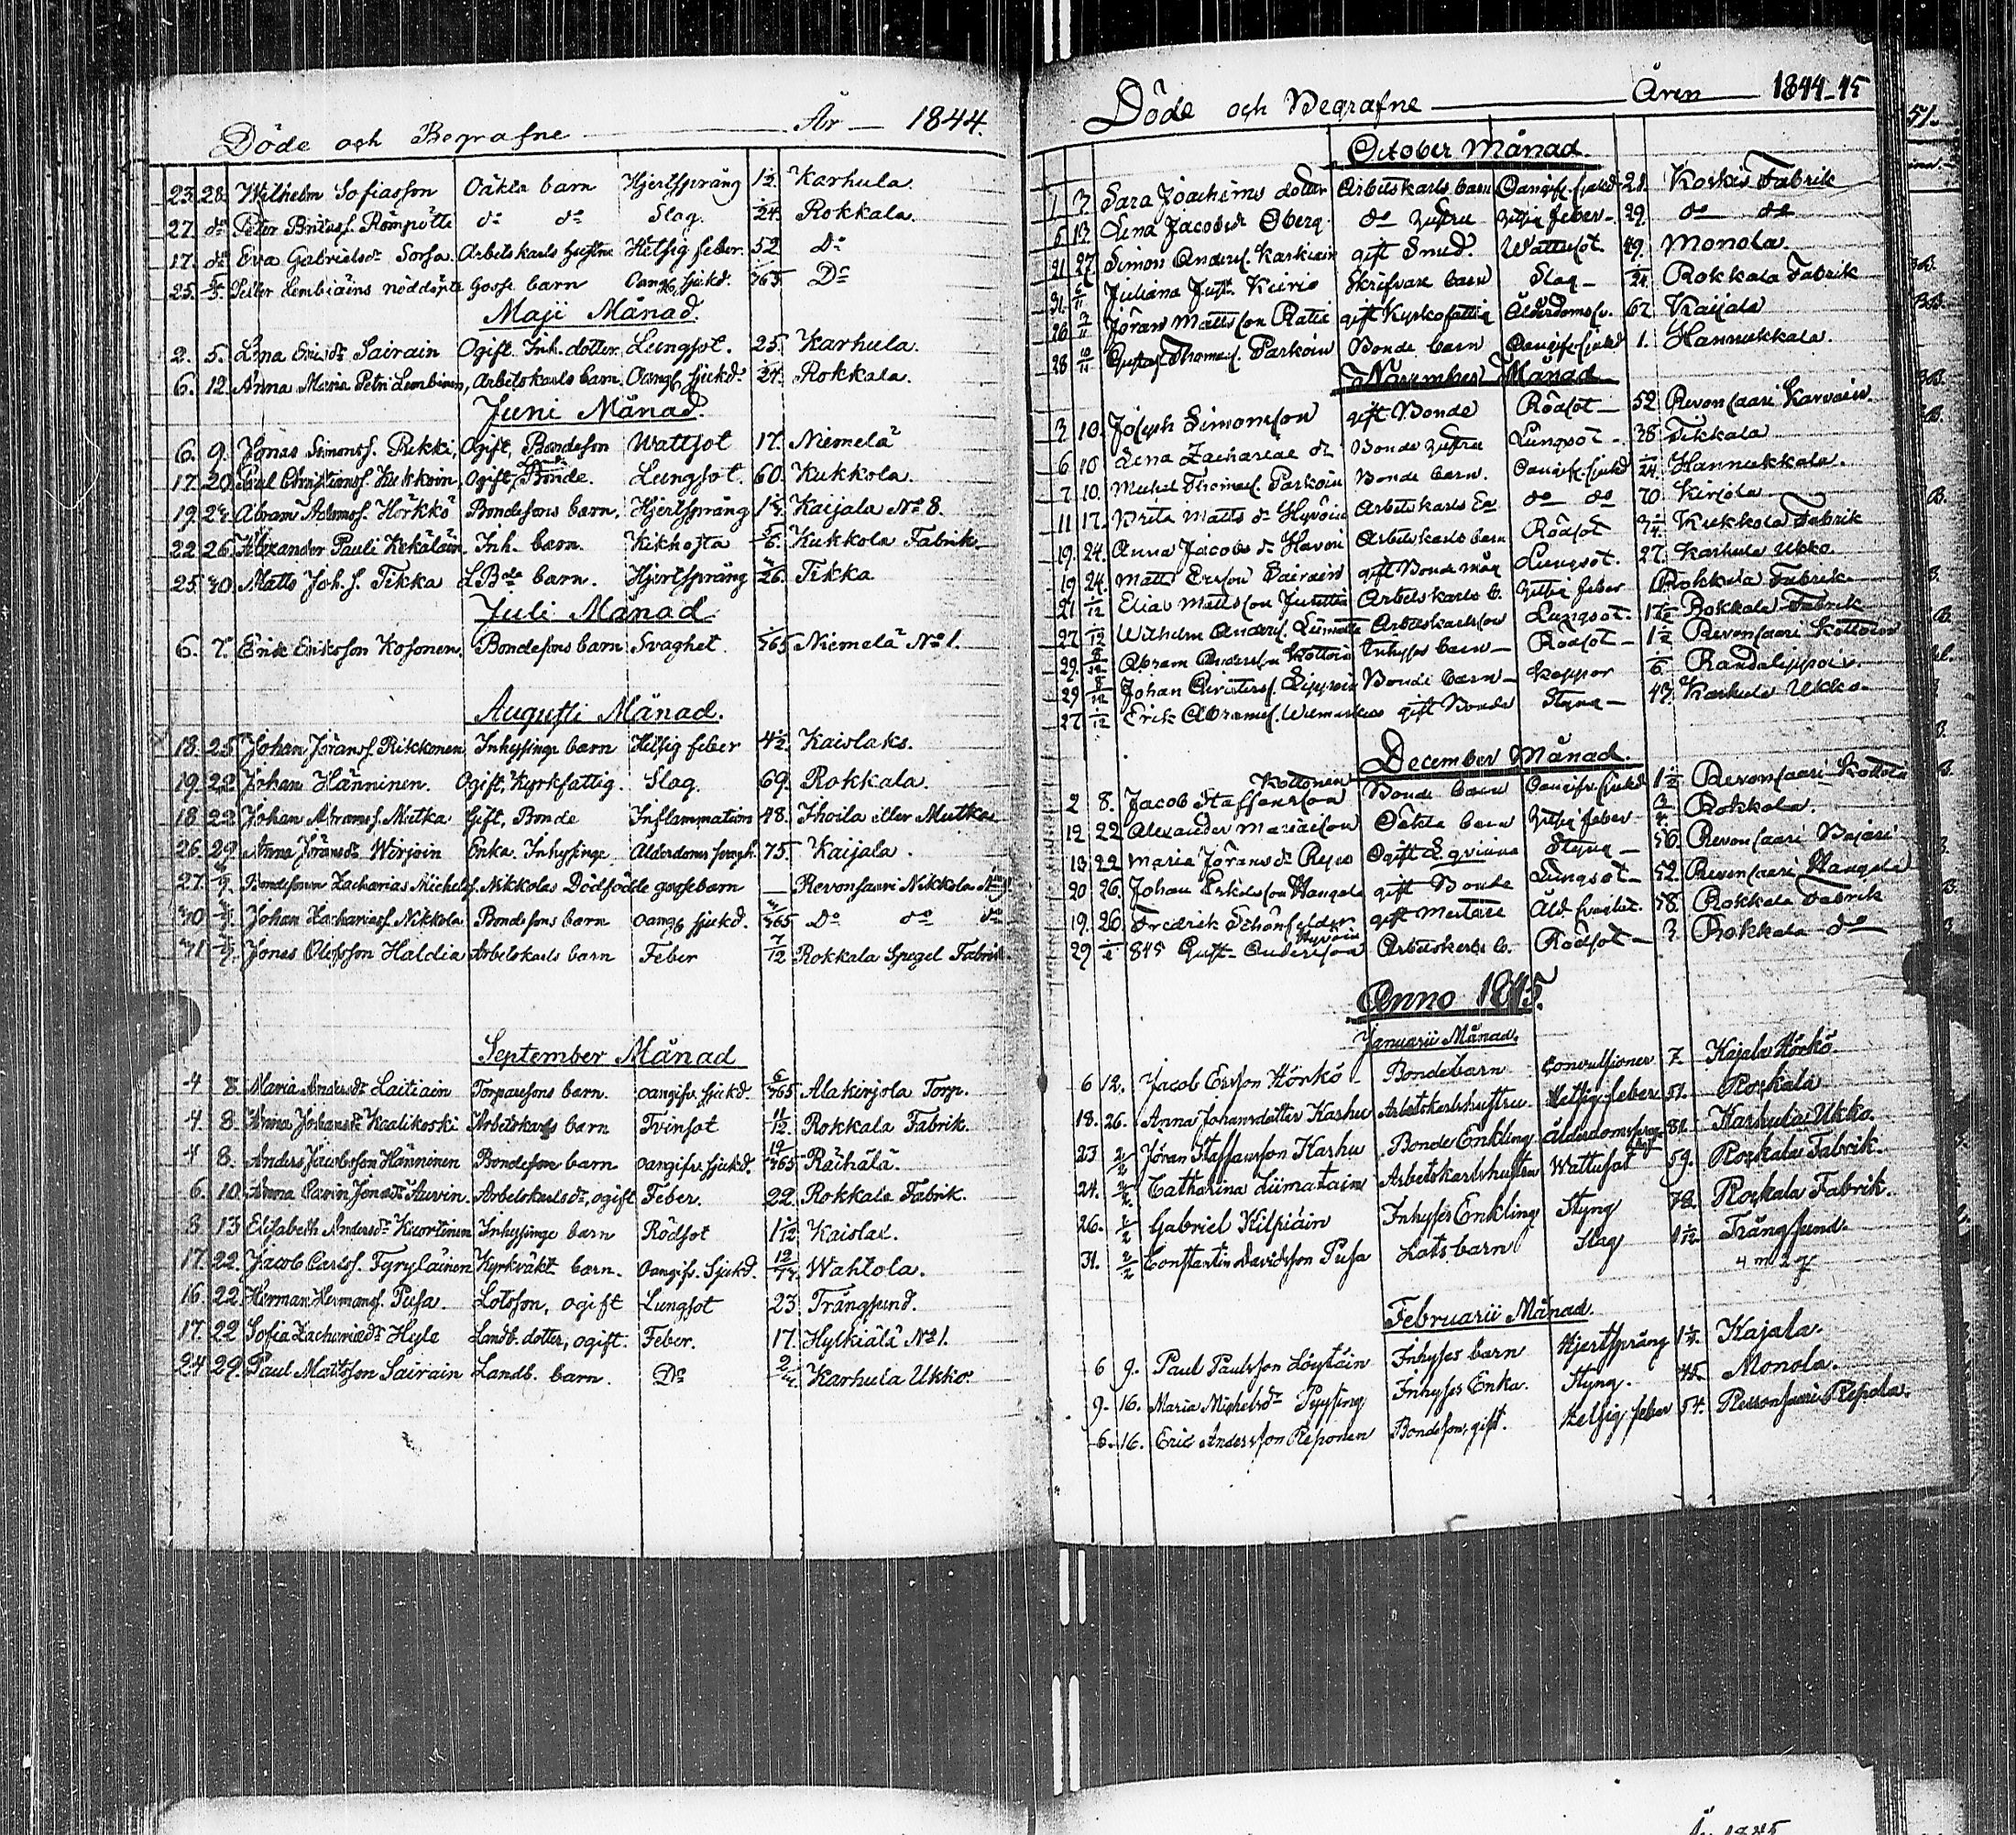 Döde och Begrafne År 1844.
23. 28. Wilhelm Sofiasson Oäkta barn Hjertspräng 1/2. Karhula.
27. do Peter Britas. Römpötti do do Slag. 1/24. Rokkala.
17. do Eva Gabrielsdr Sorsa. Arbetskarls hustru Hetsig feber. 52. Do
25. Peter Lembiäins nöddöpte Gosse barn Oang. sjukd. /365. Do
Maji Månad.
2. 5. Lena Ericsdr Sairain Ogift Inh. dotter Lungsot. 25. Karhula.
6. 12. Anna Maria Petri Lembiäinen, Arbetskarls barn Oangf. sjukd. /24. Rokkala.
Juni Månad.
6. 9. Jonas Simonss. Pekki, Ogift, Bondeson Wattsot 17. Niemelä
17. 20. Paul Christianss. Kukkoin, Ogift, Bonde. Lungsot. 60. Kukkola.
19. 24. Abram Adamss. Hörkkö Bondesons barn, Hjertspräng 1 Kaijala No 8.
22. 26. Alexander Pauli Kekäläin Inh. barn. Kikhosta 5/6. Kukkola Fabrik
25. 30. Matts Joh. s. Tikka LBde barn. Hjertspräng /26. Tikka
Juli Månad
6. 7. Erik Eriksson Kosonen. Bondesons barn Svaghet /365 Niemelä No 1.
Augusti Månad.
18. 25 Johan Jöranss. Rikkonen Inhysings barn Hetsig feber 4 1/2. Kaislaks.
19. 22 Johan Hänninen. Ogift, Kyrkfattig. Slag. 69. Rokkala.
18 22 Johan Abramss. Mutka Gift, Bonde Inflammation 48. Ihoila eller Mutka
26. 29. Anna Jöransdr Wirjoin Enka. Inhysinge Alderdoms svagh. 75. Kaijala.
27. Bondesonen Zacharias Michelss. Nikkolas Dödfödde gossebarn — Revonsaari Nikkola
30 Johan Zachariass. Nikkola Bondesons barn oangf. sjukd. /365 Do do do
31 Jonas Olofsson Haldia Arbetskarls barn Feber 7/12 Rokkala Spegel Fabrik.
September Månad
4 8. Maria Andersdr Laitiain Torparesons barn. oangifv. sjukd. 6/365 Alakirjola Torp.
4. 8. Anna Johansdr Kaalikoski Arbetskarls barn Tvinsot 11/12. Rokkala Fabrik.
4 8. Anders Jacobsson Hänninen Bondeson barn oangifv. sjukd. 19/365 Räihälä.
6. 10. Anna Carin Jonasdr Auvin. Arbetskarlsdr, ogift Feber. 22. Rokkala Fabrik.
3 13 Elisabeth Andersdr Kuortinen Inhysinge barn Rödsot 1 1/12 Kaislax.
17. 22. Jacob Carlss. Tyryläinen Kyrkväkt. barn. Oangifv. Sjukd. Wahtola.
16. 22 Herman Hermanss. Pusa. Lotsson, ogift Lungsot 23. Trångsund.
17. 22 Sofia Zachariædr Hyle Landb. dotter, ogift. Feber. 17. Hylkiälä No 1.
24 29. Paul Mattsson Sairain Landb. barn. Do Karhula Ukko.
Döde och Begrafne Åren 1844-45
October Månad.
1 3. Sara Joachims dotter Arbetskarls barn Oangifv. sjukd 28. Koskis Fabrik
5 13. Lena Jacobsdr Öberg do hustru hitsig feber 29. do do
21 27. Simon Anderss. Karkiain gift Smed. Wattusot. 49. Monola.
31. /11 Juliana Just. Kiiris Skrifvare barn Slag — /24. Rokkala Fabrik
26 3/11 Jöran Mattsson Ratii gift Kyrkofattig Ålderdomsv. 62. Kaijala
28 10/11 Gustaf Thomass. Parkoin Bonde barn Oangifv. sjukd 1. Hannukkala.
November Månad
3 10. Joseph Simonsson gift Bonde Rödsot — 52 Revonsaari Karvain
6 10 Lena Zachariae dr Bonde hustru Lungsot — 38 Tikkala
7 10. Michel Thomass. Parkoin Bonde barn. Oangifv. sjukd /24. Hannukkala.
11 17. Brita Matts dr Hyvöin Arbetskarls Ea do do 70. Kirjola
19. 24. Anna Jacobs dr Havon Arbetskarls barn Rödsot Kukkola Fabrik
19 24. Matts Ersson Sairain gift Bonde måg Lungsot. 27. Karhula Ukko.
21 1/12 Elias Mattsson Arbetskarls b. hitsig feber Rokkala Fabrik
27 1/12 Wilhelm Anderss. Liimatta Arbetskarlsson Lungsot. Rokkala Fabrik
29. 8/12 Abram Andersson Kottoin Inhyses barn — Rödsot — 1 1/2 Revonsaari Kottoin
29 8/12 Johan Christerss. Lippoin Bonde barn — Koppor /6. Randalippoi.
27 1/12 Erik Abramss. gift Bonde Styng — 43. Karhula Ukko.
December Månad.
2 8. Jacob Staffansson Kottonen Bonde barn Oangifv. sjukd 1 1/2 Revonsaari Kottola
12 22 Alexander Mariaeson Oäkta barn hitsig feber Rokkala.
13 22 Maria Jöransdr Repo Ogift Qvinna Styng — 56. Revonsaari
20 26. Johan Erikson Hangola gift Bonde Lungsot — 52. Revonsaari Hangola
19. 26. Fredrik Schönfelder gift Mästare Åld. svaghet. 58. Rokkala Fabrik
29 1/1 845 Gust. Andersson Hyvöin Arbetskarls b. Rödsot — 3. Rokkala do
Anno 1845.
Januarii Månad.
6 12. Jacob Ersson Hörkö — Bondebarn Convulsioner 7. Kajala Hörkö.
18. 26. Anna Johansdotter Karhu Arbetskarlshustru Hetsig feber 51. Rokkala
23 2/2 Jöran Staffansson Karhu Bonde Enkling Ålderdomssvaghet 81. Karhula Ukko.
24. 2/2 Catharina Liimatain Arbetskarlshustru Wattusot 59. Rokkala Fabrik.
26. 2/2 Gabriel Kilpiäin Inhyses Enkling Styng 72. Rokkala Fabrik.
31. 2/2 Constantin Davidsson Pusa Lots barn Slag 1 1/12 Trångsund.
4 m 2 q
Februarii Månad.
6 9. Paul Paulsson Löytäin Inhyses barn Hjertspräng 1 Kajala.
9. 16. Maria Michelsdr Pyysing Inhyses Enka. Styng. 75. Monola.
6. 16. Eric Andersson Reponen Bondeson, gift. Hetsig feber 54. Revonsaari Repola.
51.